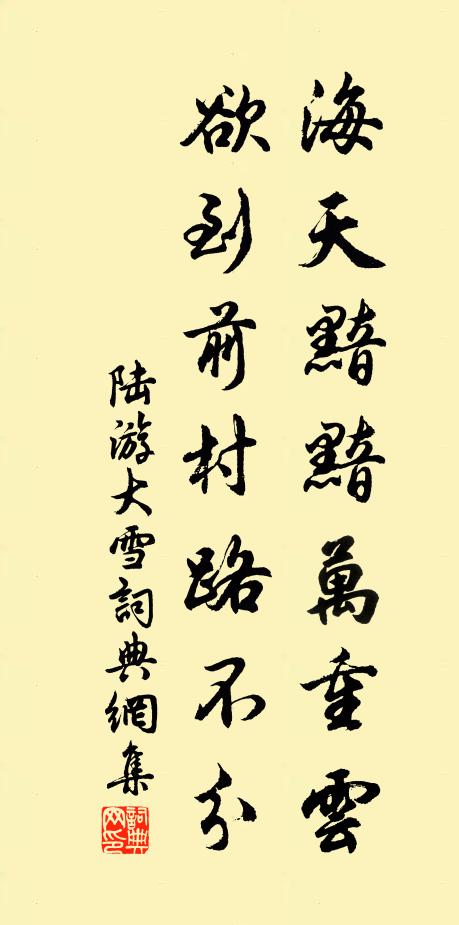 海天黯黯萬重雲
欲到前村路不分
陆游大雪詞典網集
詞典網印